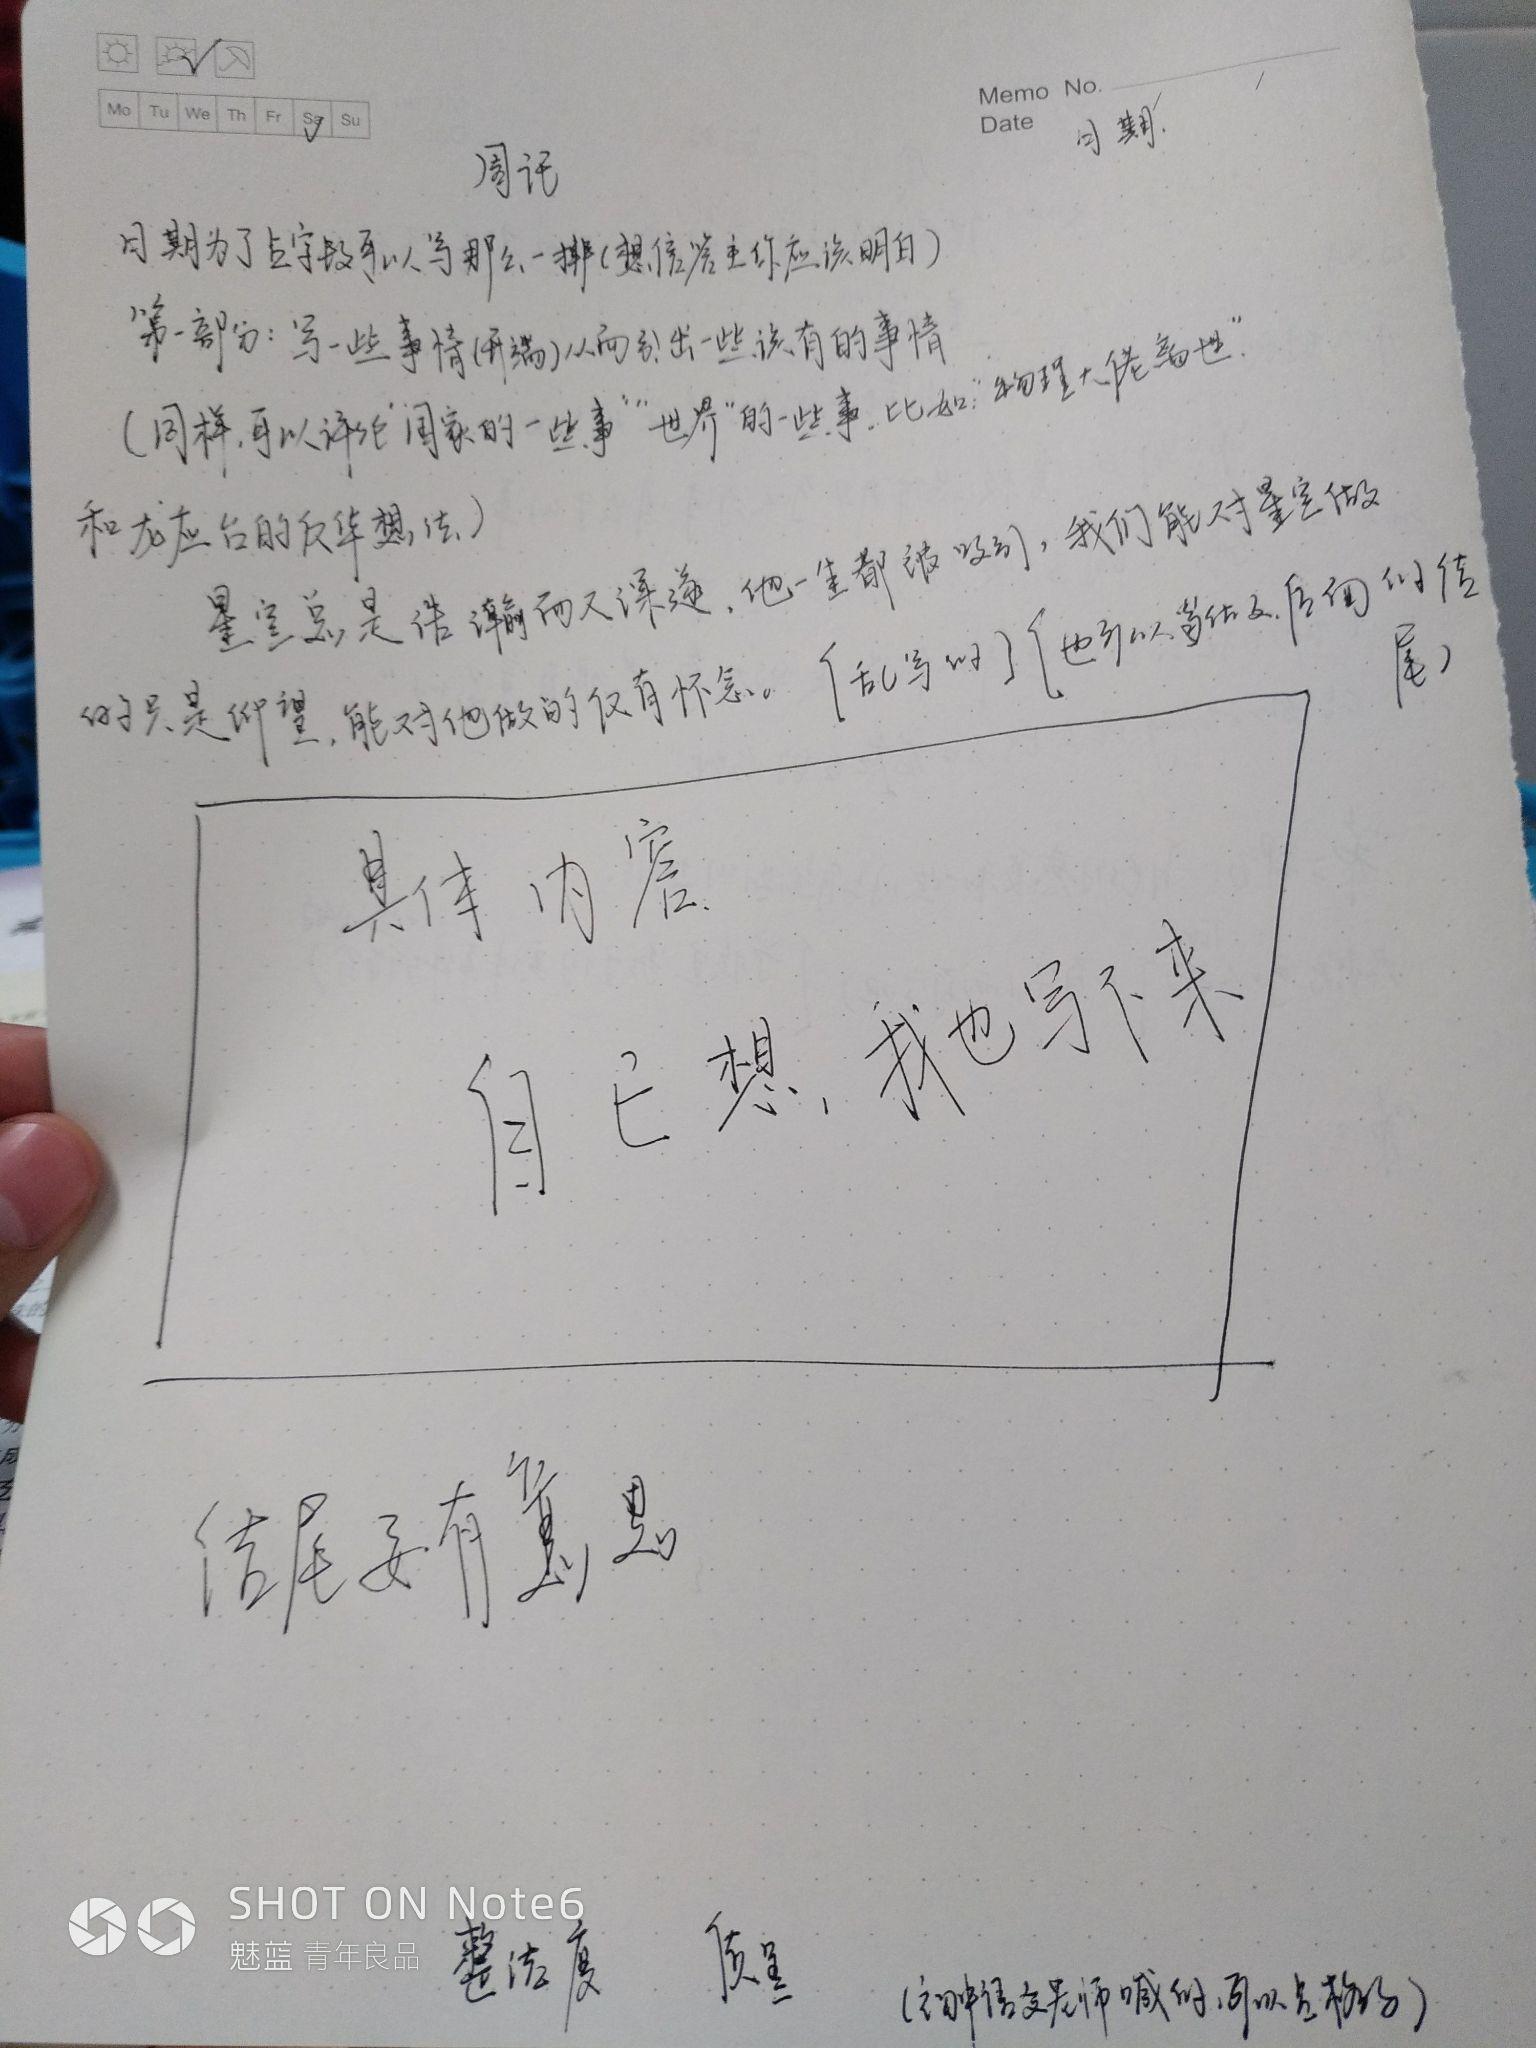 Mo Tu We Th Fr Sa Su
Memo No.
Date
日期
周记
日期为了占字数可以写那么一排(想信答主你应该明白)
"第一部分:写一些事情(开端)从而引出一些该有的事情
(同样,可以评论"国家的一些事""世界"的一些事.比如:"物理大佬离世"
和龙应台的反华想法)
星空总是浩瀚而又深邃,他一生都被吸引,我们能对星空做
的只是仰望,能对他做的仅有怀念。[乱写的][也可以当做文后面的结
尾]
具体内容
自己想,我也写下来
结尾要有意思
整洁度 质量
(初中语文老师喊的,可以占格的)
SHOT ON Note6
魅蓝 青年良品